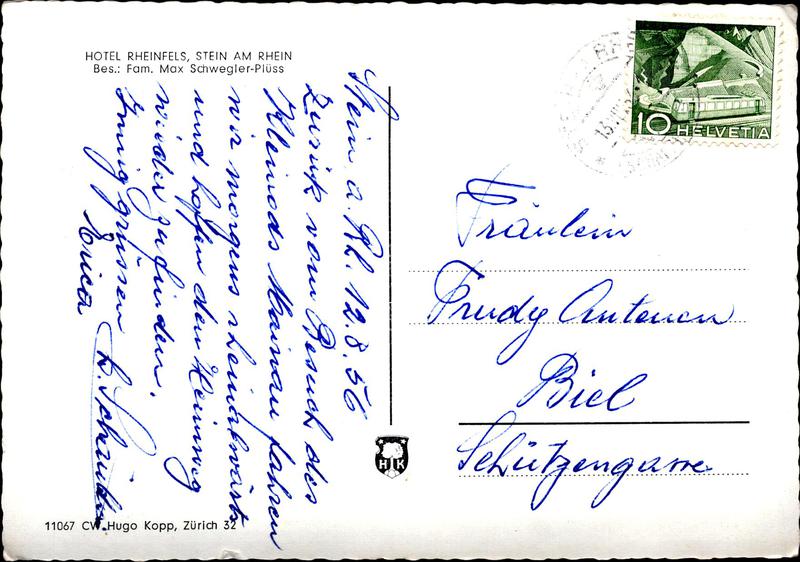 HOTEL RHEINFELS, STEIN AM RHEIN
Bes.: Fam. Max Schwegler-Plüss
Stein a. Rh. 12.8.56
Zurück vom Besuch des
Kleinods Mainau fahren
wir morgens rheinabwärts
und hoffen den Heimweg
wieder zu finden.
Innig grüssen
Erica
10 HELVETIA
Fräulein
Trudy Antenen
Biel
Schützengasse
H K
11067 CW Hugo Kopp, Zürich 32